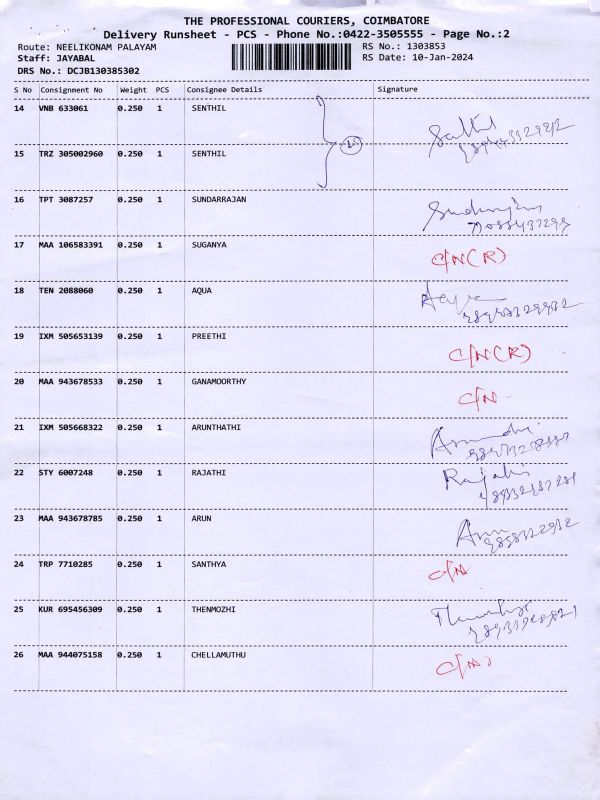 THE PROFESSIONAL COURIERS, COIMBATORE
Delivery Runsheet - PCS - Phone No.:0422-3505555 - Page No.:2
Route: NEELIKONAM PALAYAM RS No.: 1303853
Staff: JAYABAL RS Date: 10-Jan-2024
DRS No.: DCJB130385302
S No Consignment No Weight PCS Consignee Details Signature
14 VNB 633061 0.250 1 SENTHIL
15 TRZ 305002960 0.250 1 SENTHIL
16 TPT 3087257 0.250 1 SUNDARRAJAN
17 MAA 106583391 0.250 1 SUGANYA C/N(R)
18 TEN 2088060 0.250 1 AQUA
19 IXM 505653139 0.250 1 PREETHI C/N(R)
20 MAA 943678533 0.250 1 GANAMOORTHY C/N
21 IXM 505668322 0.250 1 ARUNTHATHI
22 STY 6007248 0.250 1 RAJATHI Rajathi
23 MAA 943678785 0.250 1 ARUN Arun
24 TRP 7710285 0.250 1 SANTHYA C/N
25 KUR 695456309 0.250 1 THENMOZHI
26 MAA 944075158 0.250 1 CHELLAMUTHU C/N